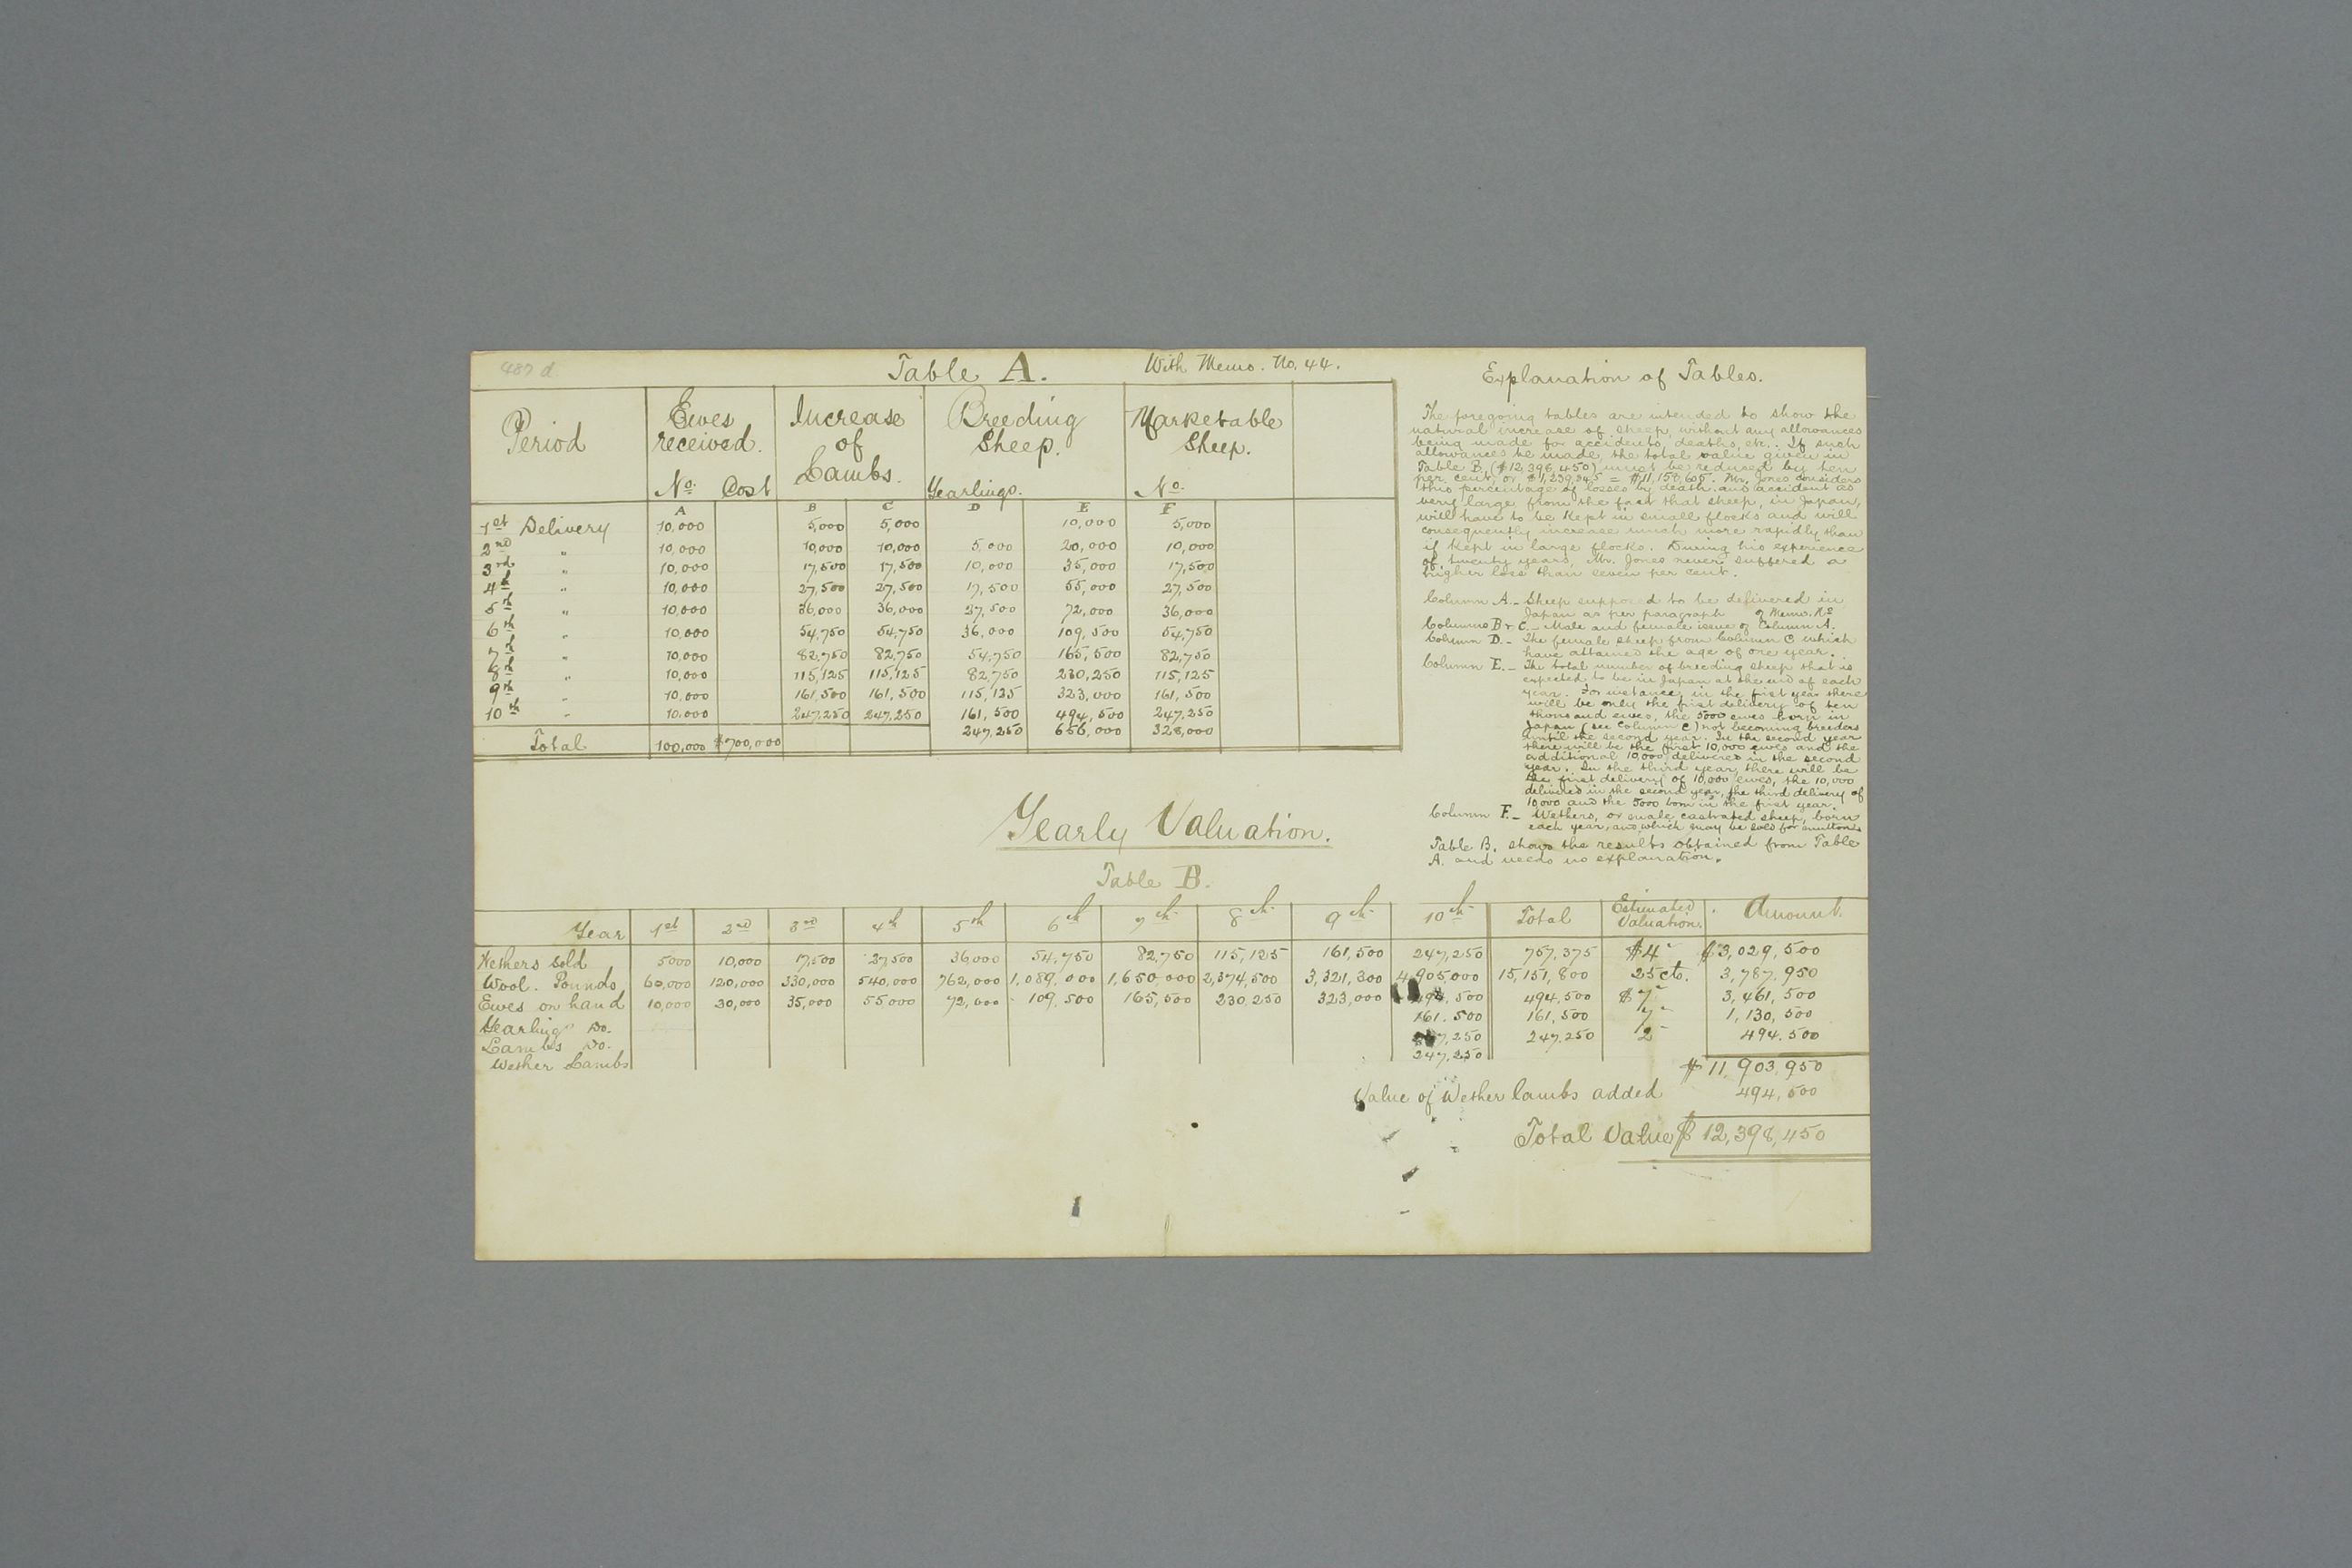 487 d
Table A.
With Memo. No. 44.
Period Ewes received. Increase of Lambs. Breeding Sheep. Marketable Sheep.
No. Cost Yearlings. No.
A B C D E F
1st Delivery 10,000 5,000 5,000 10,000 5,000
2nd " 10,000 10,000 10,000 5,000 20,000 10,000
3rd " 10,000 17,500 17,500 10,000 35,000 17,500
4th " 10,000 27,500 27,500 17,500 55,000 27,500
5th " 10,000 36,000 36,000 27,500 72,000 36,000
6th " 10,000 54,750 54,750 36,000 109,500 54,750
7th " 10,000 82,750 82,750 54,750 165,500 82,750
8th " 10,000 115,125 115,125 82,750 230,250 115,125
9th " 10,000 161,500 161,500 115,125 323,000 161,500
10th " 10,000 247,250 247,250 161,500 494,500 247,250
247,250 656,000 328,000
Total 100,000 $700,000
Explanation of Tables.
The foregoing tables are intended to show the
natural increase of sheep, without any allowances
being made for accidents, deaths, etc.. If such
allowances be made, the total value given in
Table B. ($12,398,450) must be reduced by ten
per cent, or $1,239,845 = $11,158,605. Mr. Jones considers
this percentage of losses by death and accident as
very large from the fact that sheep, in Japan,
will have to be kept in small flocks and will
consequently, increase much more rapidly than
if kept in large flocks. During his experience
of twenty years, Mr. Jones never suffered a
higher loss than seven per cent.
Column A.- Sheep supposed to be delivered in
Japan as per paragraph of Memo. No
Columns B & C.- Male and female issue of Column A.
Column D.- The female sheep from Column C which
have attained the age of one year.
Column E.- The total number of breeding sheep that is
expected to be in Japan at the end of each
year. For instance, in the first year there
will be only the first delivery of ten
thousand ewes, the 5000 ewes born in
Japan (see Column C) not becoming breeders
until the second year. In the second year
there will be the first 10,000 ewes and the
additional 10,000 delivered in the second
year. In the third year, there will be
the first delivery of 10,000 ewes, the 10,000
delivered in the second year, the third delivery of
10,000 and the 5000 born in the first year.
Column F.- Wethers, or male castrated sheep, born
each year, and which may be sold for mutton.
Table B. shows the results obtained from Table
A. and needs no explanation.
Yearly Valuation.
Table B.
Year 1st 2nd 3rd 4th 5th 6th 7th 8th 9th 10th Total Estimated Valuation. Amount.
Wethers sold 5000 10,000 17,500 27,500 36,000 54,750 82,750 115,125 161,500 247,250 757,375 $4- $3,029,500
Wool. Pounds 60,000 120,000 330,000 540,000 762,000 1,089,000 1,650,000 2,374,500 3,321,300 4,905,000 15,151,800 25 cts. 3,787,950
Ewes on hand 10,000 20,000 35,000 55,000 72,000 109,500 165,500 230,250 323,000 494,500 494,500 $7- 3,461,500
Yearling Do. 161,500 161,500 7- 1,130,500
Lambs Do. 247,250 247,250 2- 494,500
Wether Lambs 247,250
$11,903,950
Value of Wether lambs added 494,500
Total Value $12,398,450